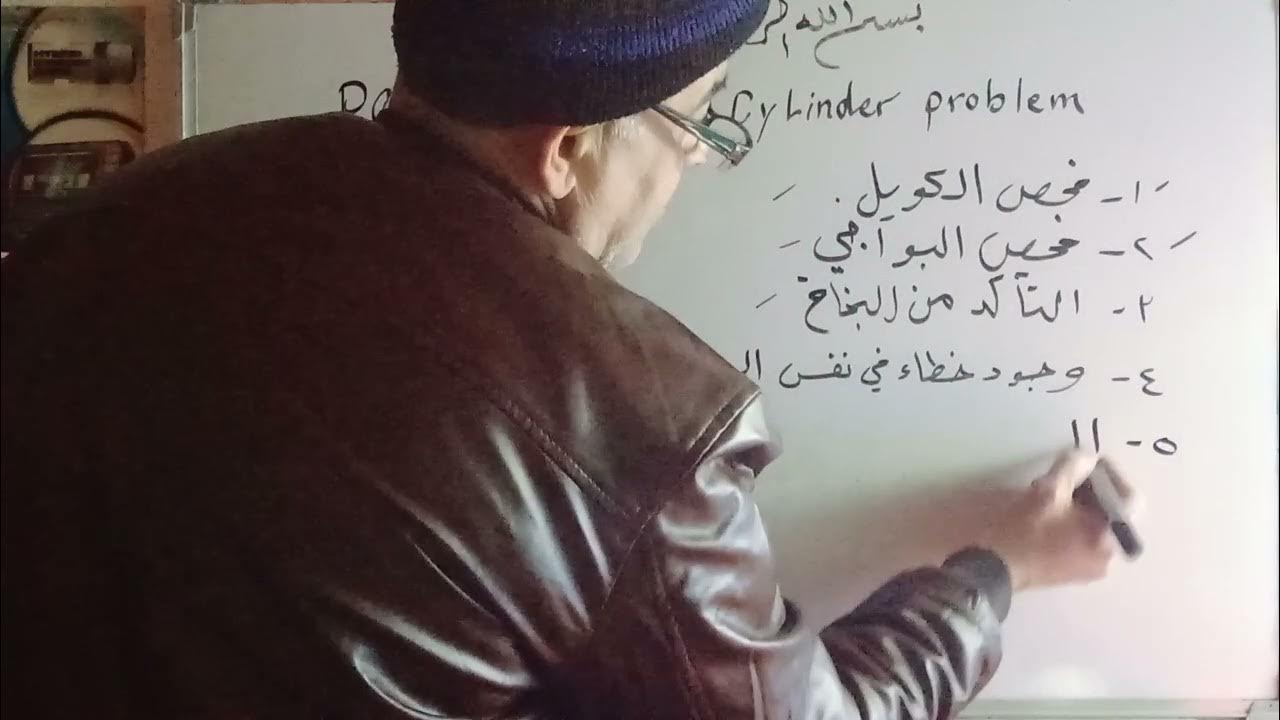 بسم الله الر
Do Cylinder problem
١- فحص الكويل.
٢- فحص البواجي
٣- التأكد من البخاخ
٤- وجود خطاء في نفس ال
٥- ال